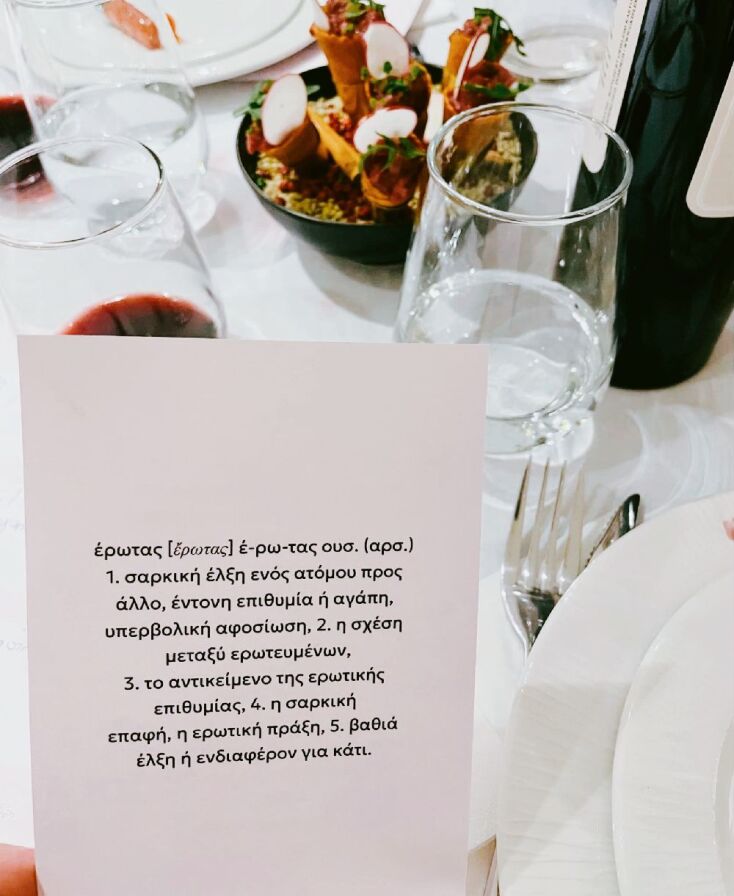 έρωτας [ἔρωτας] έ-ρω-τας ουσ. (αρσ.)
1. σαρκική έλξη ενός ατόμου προς
άλλο, έντονη επιθυμία ή αγάπη,
υπερβολική αφοσίωση, 2. η σχέση
μεταξύ ερωτευμένων,
3. το αντικείμενο της ερωτικής
επιθυμίας, 4. η σαρκική
επαφή, η ερωτική πράξη, 5. βαθιά
έλξη ή ενδιαφέρον για κάτι.